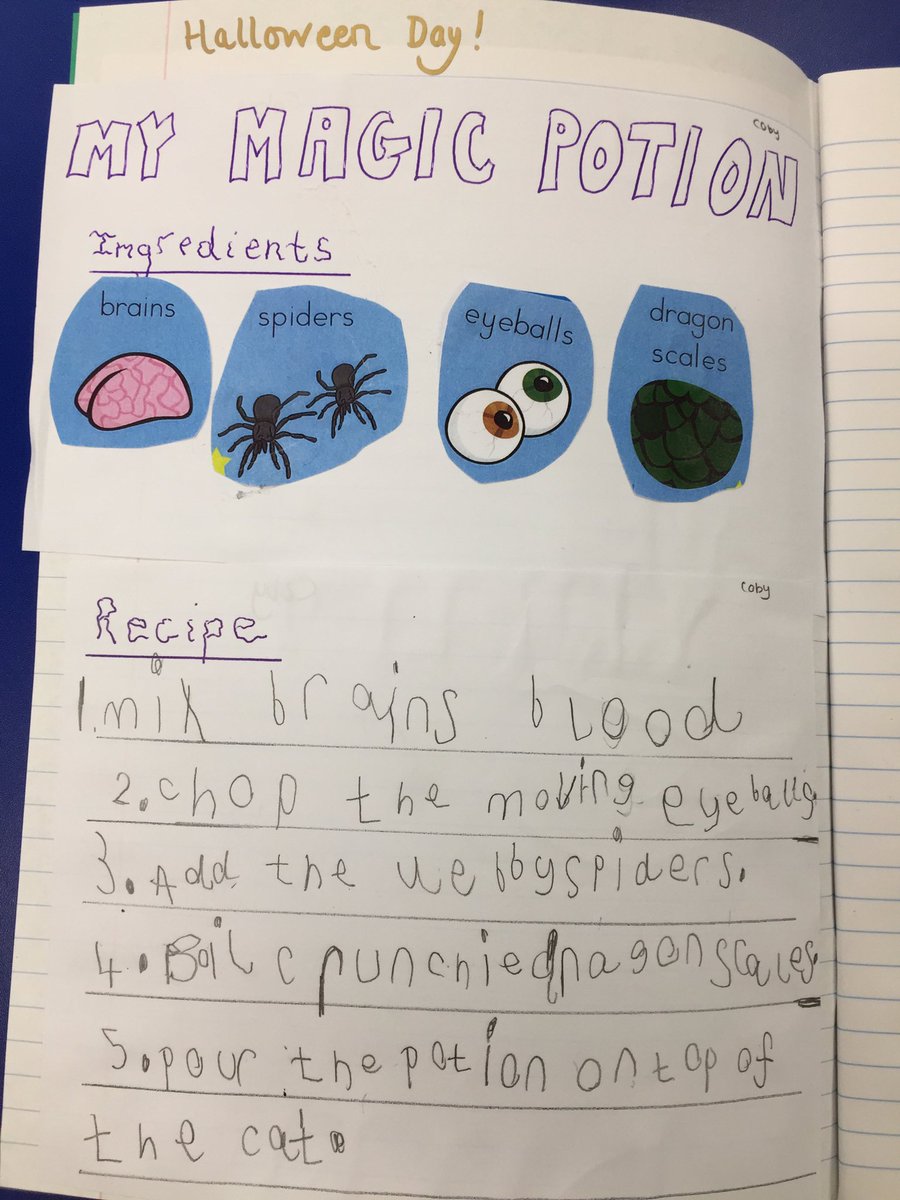 Halloween Day!
coby
MY MAGIC POTION
Ingredients
brains
spiders
eyeballs
dragon
scales
coby
Recipe
1.mix brains blood
2.chop the moving eyeballs.
3.Add the webbyspiders.
4.Boil crunchiedragonscales.
5.pour the potion on top of
the cat.